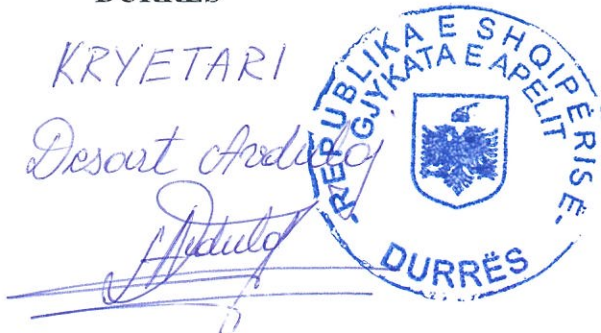 DURRËS
KRYETARI
Desart Avdulaj
Avdulaj
REPUBLIKA E SHQIPËRISË
GJYKATA E APELIT
DURRËS